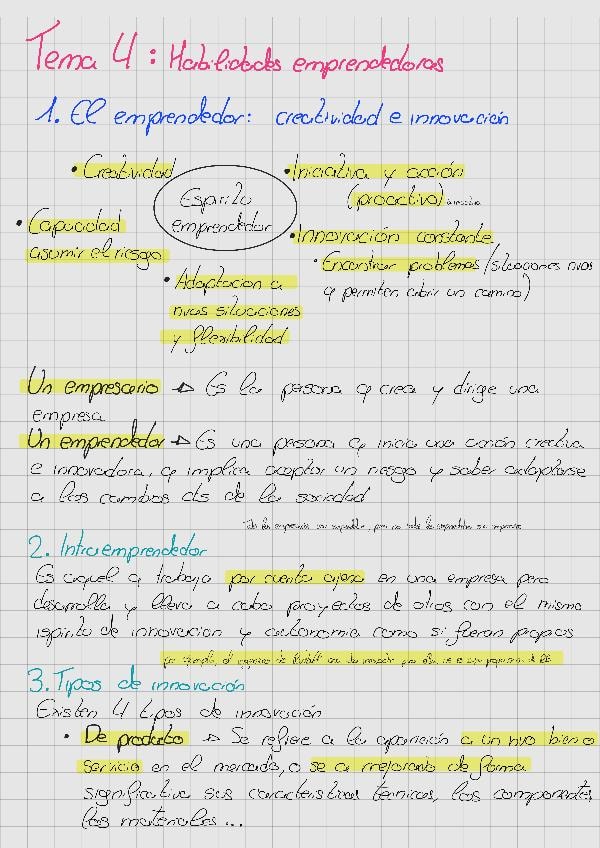 Tema 4: Habilidades emprendedoras
1. El emprendedor: creatividad e innovación
• Creatividad
Espíritu
emprendedor
• Iniciativa y acción
(proactiva)
• Capacidad
asumir el riesgo
• Innovación constante
• Encontrar problemas (situaciones nvas
q permiten abrir un camino)
• Adaptacion a
nvas situaciones
y flexibilidad
Un empresario → Es la persona q crea y dirige una
empresa
Un emprendedor → Es una persona q inicia una acción creativa
e innovadora, q implica aceptar un riesgo y saber adaptarse
a los cambios ds de la sociedad
2. Intraemprendedor
Es aquel q trabaja por cuenta ajena en una empresa pero
desarrolla y lleva a cabo proyectos de otros con el mismo
espiritu de innovacion y autonomia como si fueran propios
3. Tipos de innovación
Existen 4 tipos de innovación
• De producto → Se refiere a la aparición a un nvo bien o
servicio en el mercado, o se a mejorado de forma
significativa sus características tecnicas, los componentes,
los materiales...